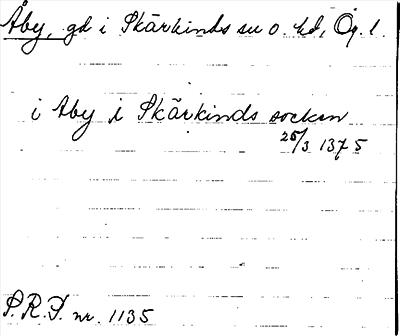 Åby, gd i Skärkinds sn o. hd, Ög. l.
i Aby i Skärkinds socken
25/3 1375
S.R.P. nr. 1135